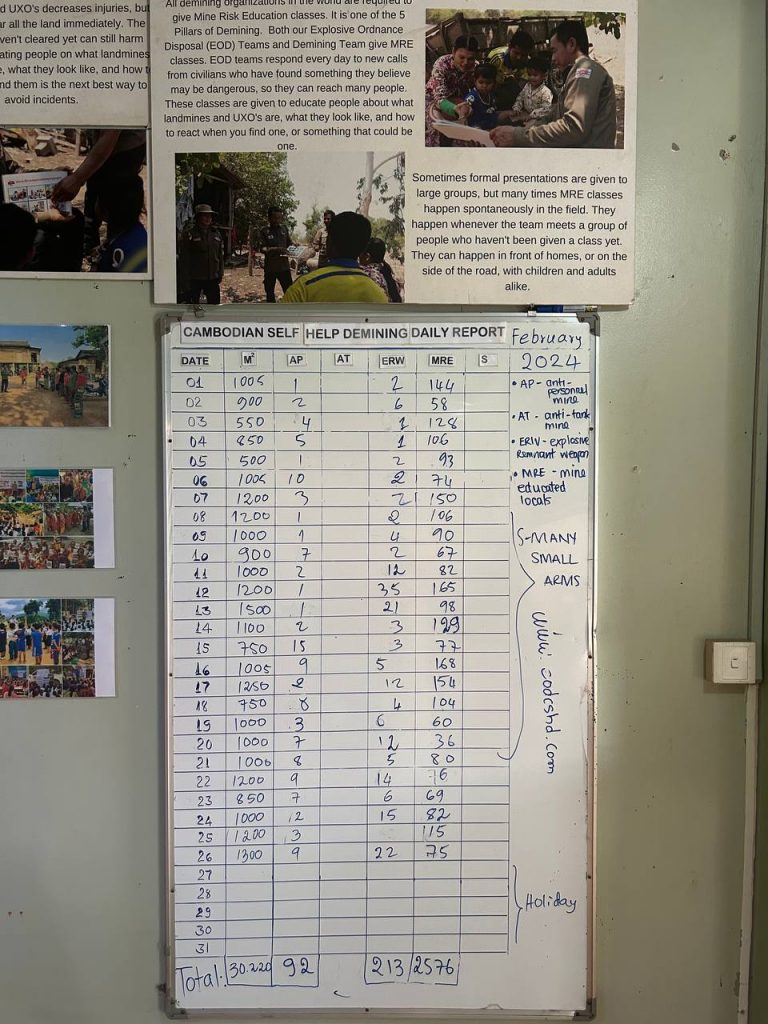 d UXO's decreases injuries, but
ar all the land immediately. The
ven't cleared yet can still harm
ating people on what landmines
e, what they look like, and how t
nd them is the next best way to
avoid incidents.
All demining organizations in the world are required to
give Mine Risk Education classes. It is one of the 5
Pillars of Demining. Both our Explosive Ordnance
Disposal (EOD) Teams and Demining Team give MRE
classes. EOD teams respond every day to new calls
from civilians who have found something they believe
may be dangerous, so they can reach many people.
These classes are given to educate people about what
landmines and UXO's are, what they look like, and how
to react when you find one, or something that could be
one.
Sometimes formal presentations are given to
large groups, but many times MRE classes
happen spontaneously in the field. They
happen whenever the team meets a group of
people who haven't been given a class yet.
They can happen in front of homes, or on the
side of the road, with children and adults
alike.
CAMBODIAN SELF HELP DEMINING DAILY REPORT
February
2024
DATE M² AP AT ERW MRE S
01 1005 1 2 144
02 900 2 6 58
03 550 4 1 128
04 850 5 1 106
05 500 1 2 93
06 1005 10 2 74
07 1200 3 2 150
08 1200 1 2 106
09 1000 1 4 90
10 900 7 2 67
11 1000 2 12 82
12 1200 1 35 165
13 1500 1 21 98
14 1100 2 3 129
15 750 15 3 77
16 1005 9 5 168
17 1250 2 12 154
18 750 4 104
19 1000 3 6 60
20 1000 7 12 36
21 1006 8 5 80
22 1200 9 14 76
23 850 7 6 69
24 1000 2 15 82
25 1200 3 115
26 1300 9 22 75
27
28
29
30
31
Total. 30.220 92 213 2576
• AP - anti-
personnel
mine
• AT - anti-tank
mine
• ERW - explosive
remnant weapon
• MRE - mine
educated
locals
S-MANY
SMALL
ARMS
Holiday